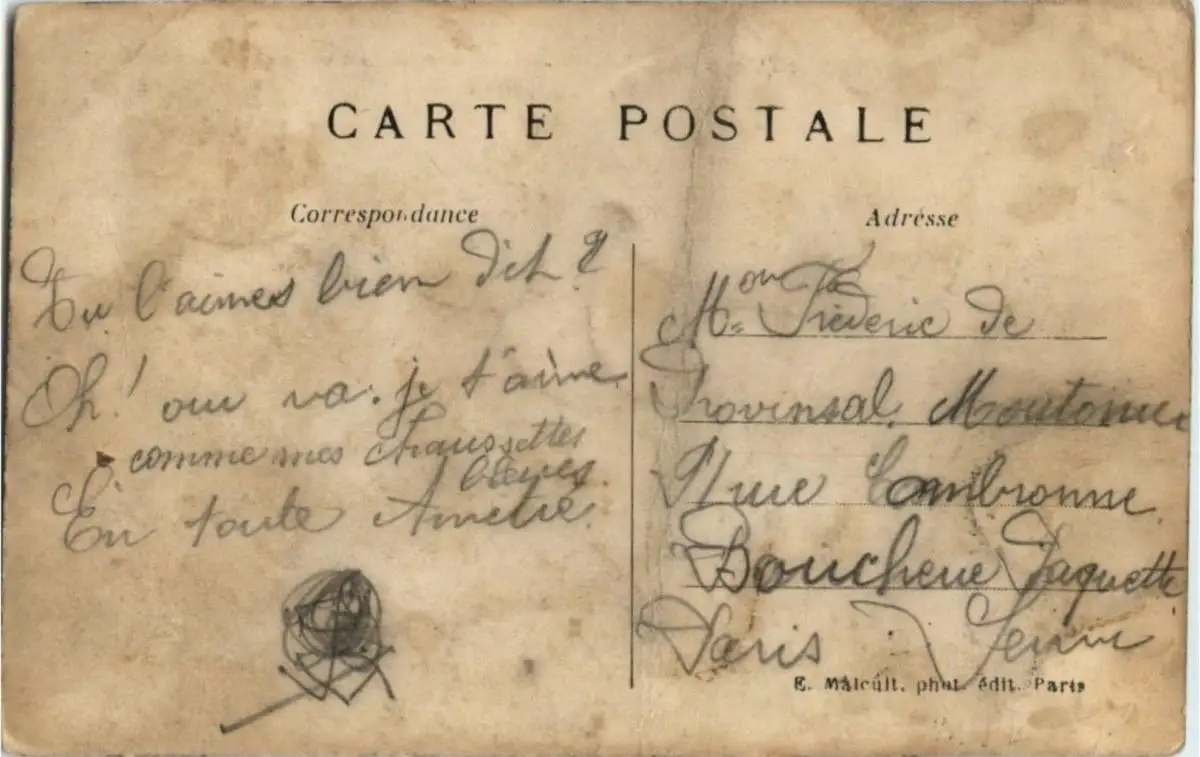 CARTE POSTALE
Correspondance
Adresse
Tu l'aimes bien dit ?
Oh! oui va. je t'aime
comme mes chaussettes
bleues.
En toute Amitié.
Mr Fréderic de
Provinsal.
Rue Cambronne
Boucherie Jaquette
Paris Seine
E. Malcuit. phot. édit. Paris